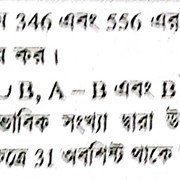 346 এবং 556 এর
কর ।
∪ B, A – B এবং B
ভাবিক সংখ্যা দ্বারা উ
31 অবশিষ্ট থাকে